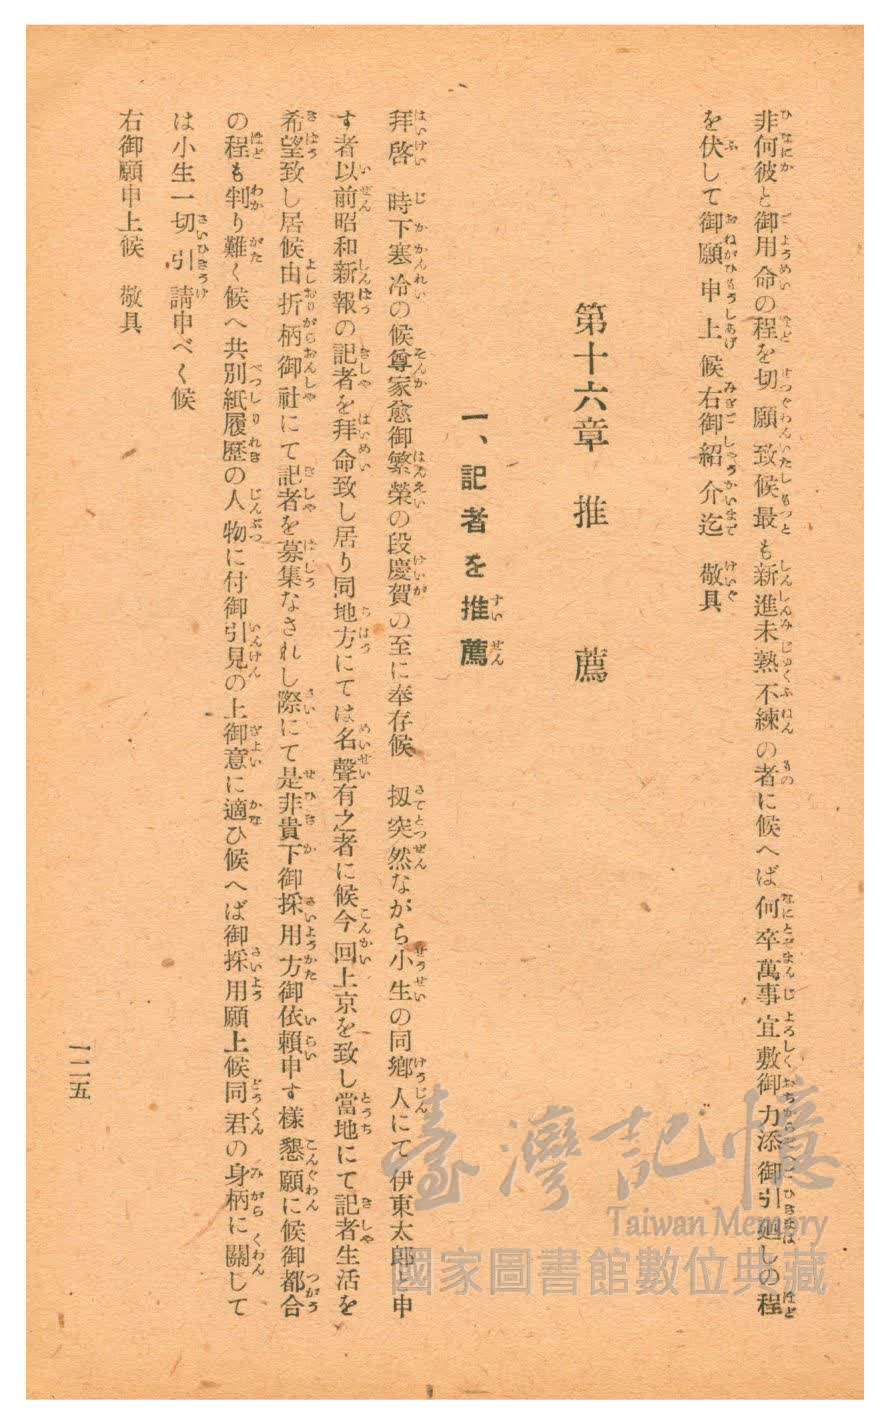 非何彼と御用命の程を切願致候最も新進未熟不練の者に候へば何卒萬事宜敷御力添御引廻しの程
を伏して御願申上候右御紹介迄　敬具
第十六章　推　　薦
一、記者を推薦
拜啓　時下寒冷の候尊家愈御繁榮の段慶賀の至に奉存候　扨突然ながら小生の同鄕人にて伊東太郎と申
す者以前昭和新報の記者を拜命致し居り同地方にては名聲有之者に候今回上京を致し當地にて記者生活を
希望致し居候由折柄御社にて記者を募集なされし際にて是非貴下御採用方御依賴申す樣懇願に候御都合
の程も判り難く候へ共別紙履歷の人物に付御引見の上御意に適ひ候へば御採用願上候同君の身柄に關して
は小生一切引請申べく候
右御願申上候　敬具
一二五
臺灣記憶
Taiwan Memory
國家圖書館數位典藏